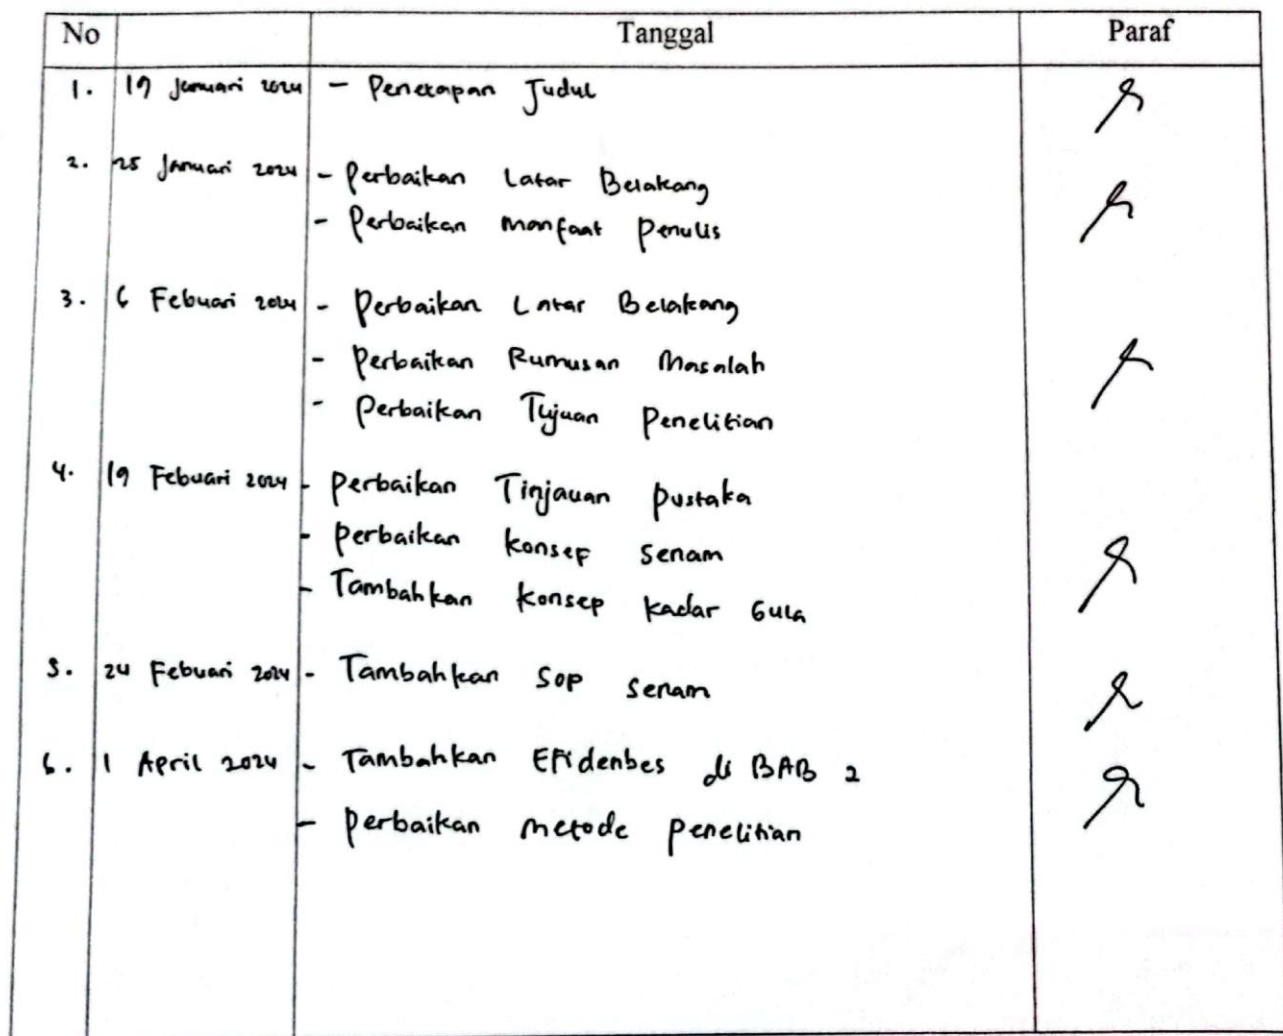 No Tanggal Paraf
1. 19 Januari 2024 - Penetapan Judul
2. 25 Januari 2024 - Perbaikan Latar Belakang
- Perbaikan Manfaat Penulis
3. 6 Febuari 2024 - Perbaikan Latar Belakang
- Perbaikan Rumusan Masalah
- Perbaikan Tujuan Penelitian
4. 19 Febuari 2024 - Perbaikan Tinjauan Pustaka
- Perbaikan Konsep Senam
- Tambahkan Konsep Kadar Gula
5. 24 Febuari 2024 - Tambahkan SOP Senam
6. 1 April 2024 - Tambahkan Efidenbes di BAB 2
- Perbaikan metode penelitian